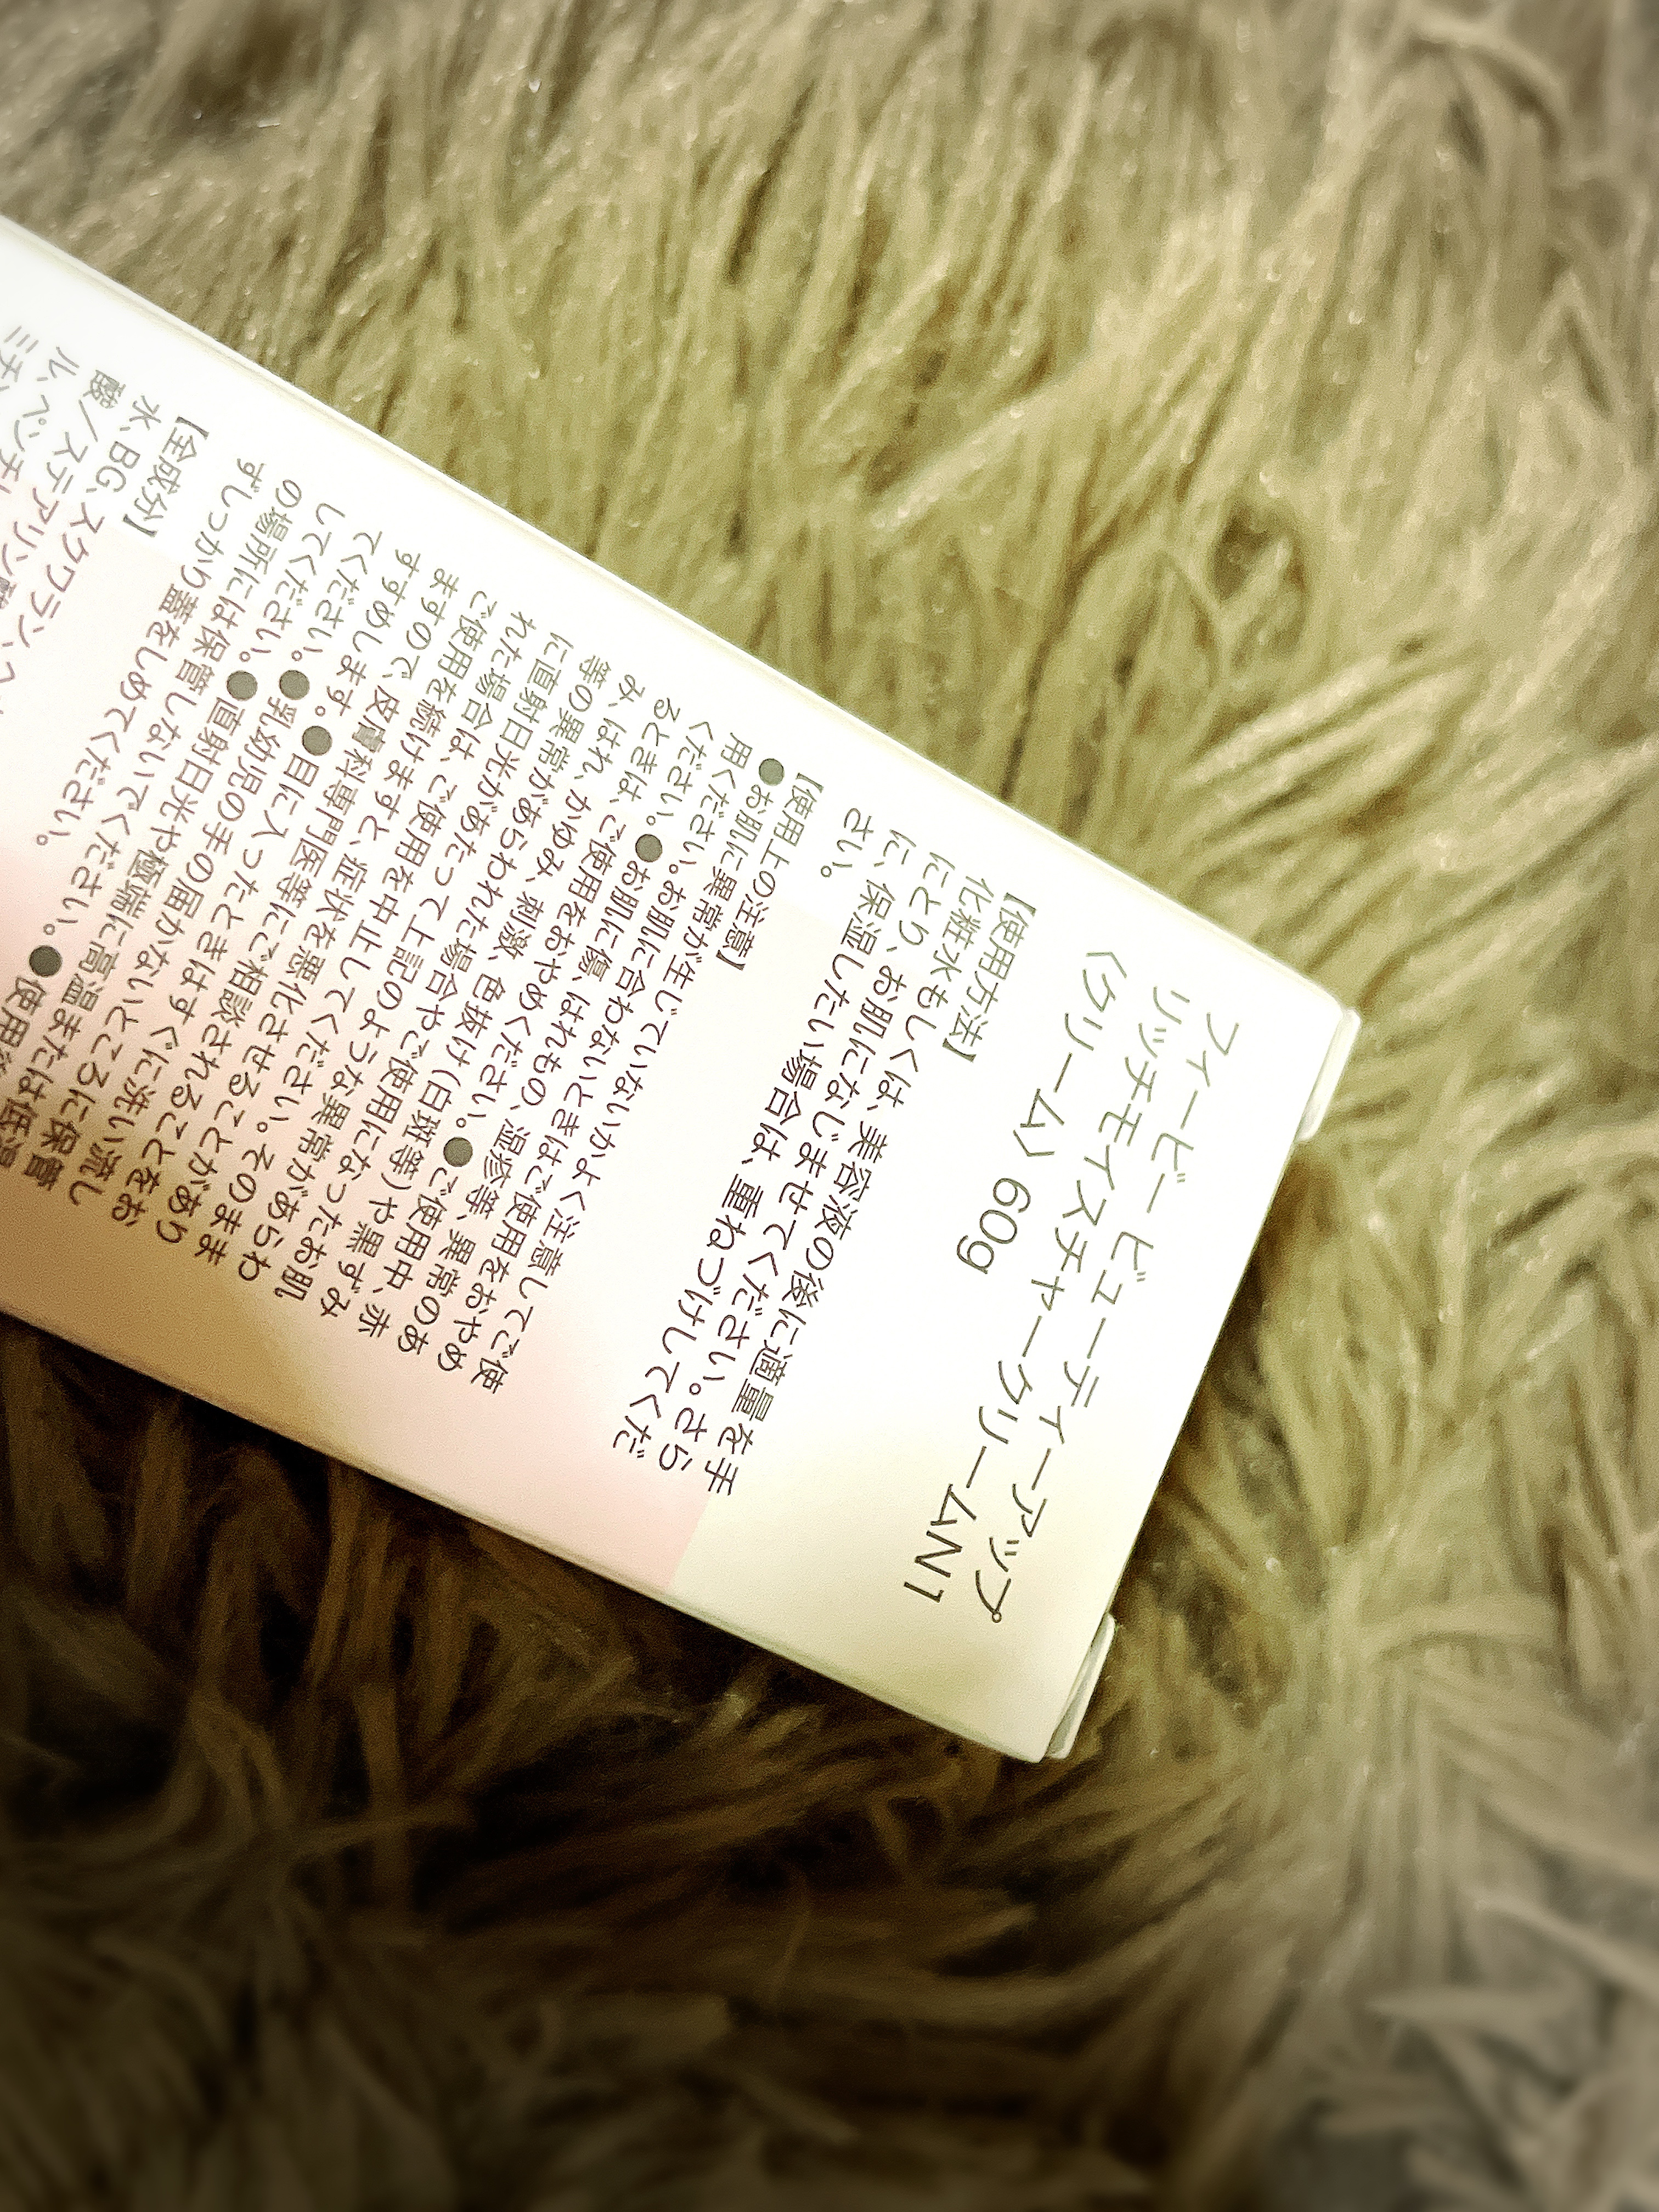 フィービー ビューティーアップ
リッチモイスチャークリームN1
〈クリーム〉 60g
【使用方法】
化粧水もしくは、美容液の後に適量を手
にとり、お肌になじませてください。さら
に、保湿したい場合は、重ねづけしてくだ
さい。
【使用上の注意】
●お肌に異常が生じていないかよく注意してご使
用ください。お肌に合わないときはご使用をおやめ
ください。●お肌に傷、はれもの、湿疹等、異常のあ
るときは、ご使用をおやめください。●ご使用中、赤
み、はれ、かゆみ、刺激、色抜け(白斑等)や黒ずみ
等の異常があらわれた場合やご使用になったお肌
に直射日光があたって上記のような異常があらわ
れた場合は、ご使用を中止してください。そのまま
ご使用を続けますと、症状を悪化させることがあり
ますので、皮膚科専門医等にご相談されることをお
すすめします。●目に入ったときはすぐに洗い流し
てください。●乳幼児の手の届かないところに保管
してください。●直射日光や極端に高温または低温
の場所には保管しないでください。●使用後
ずしっかり蓋をしめてください。
【全成分】
水、BG、スクワラン、
酸/ステアリン酸
ル、ペンチレ
ミチン